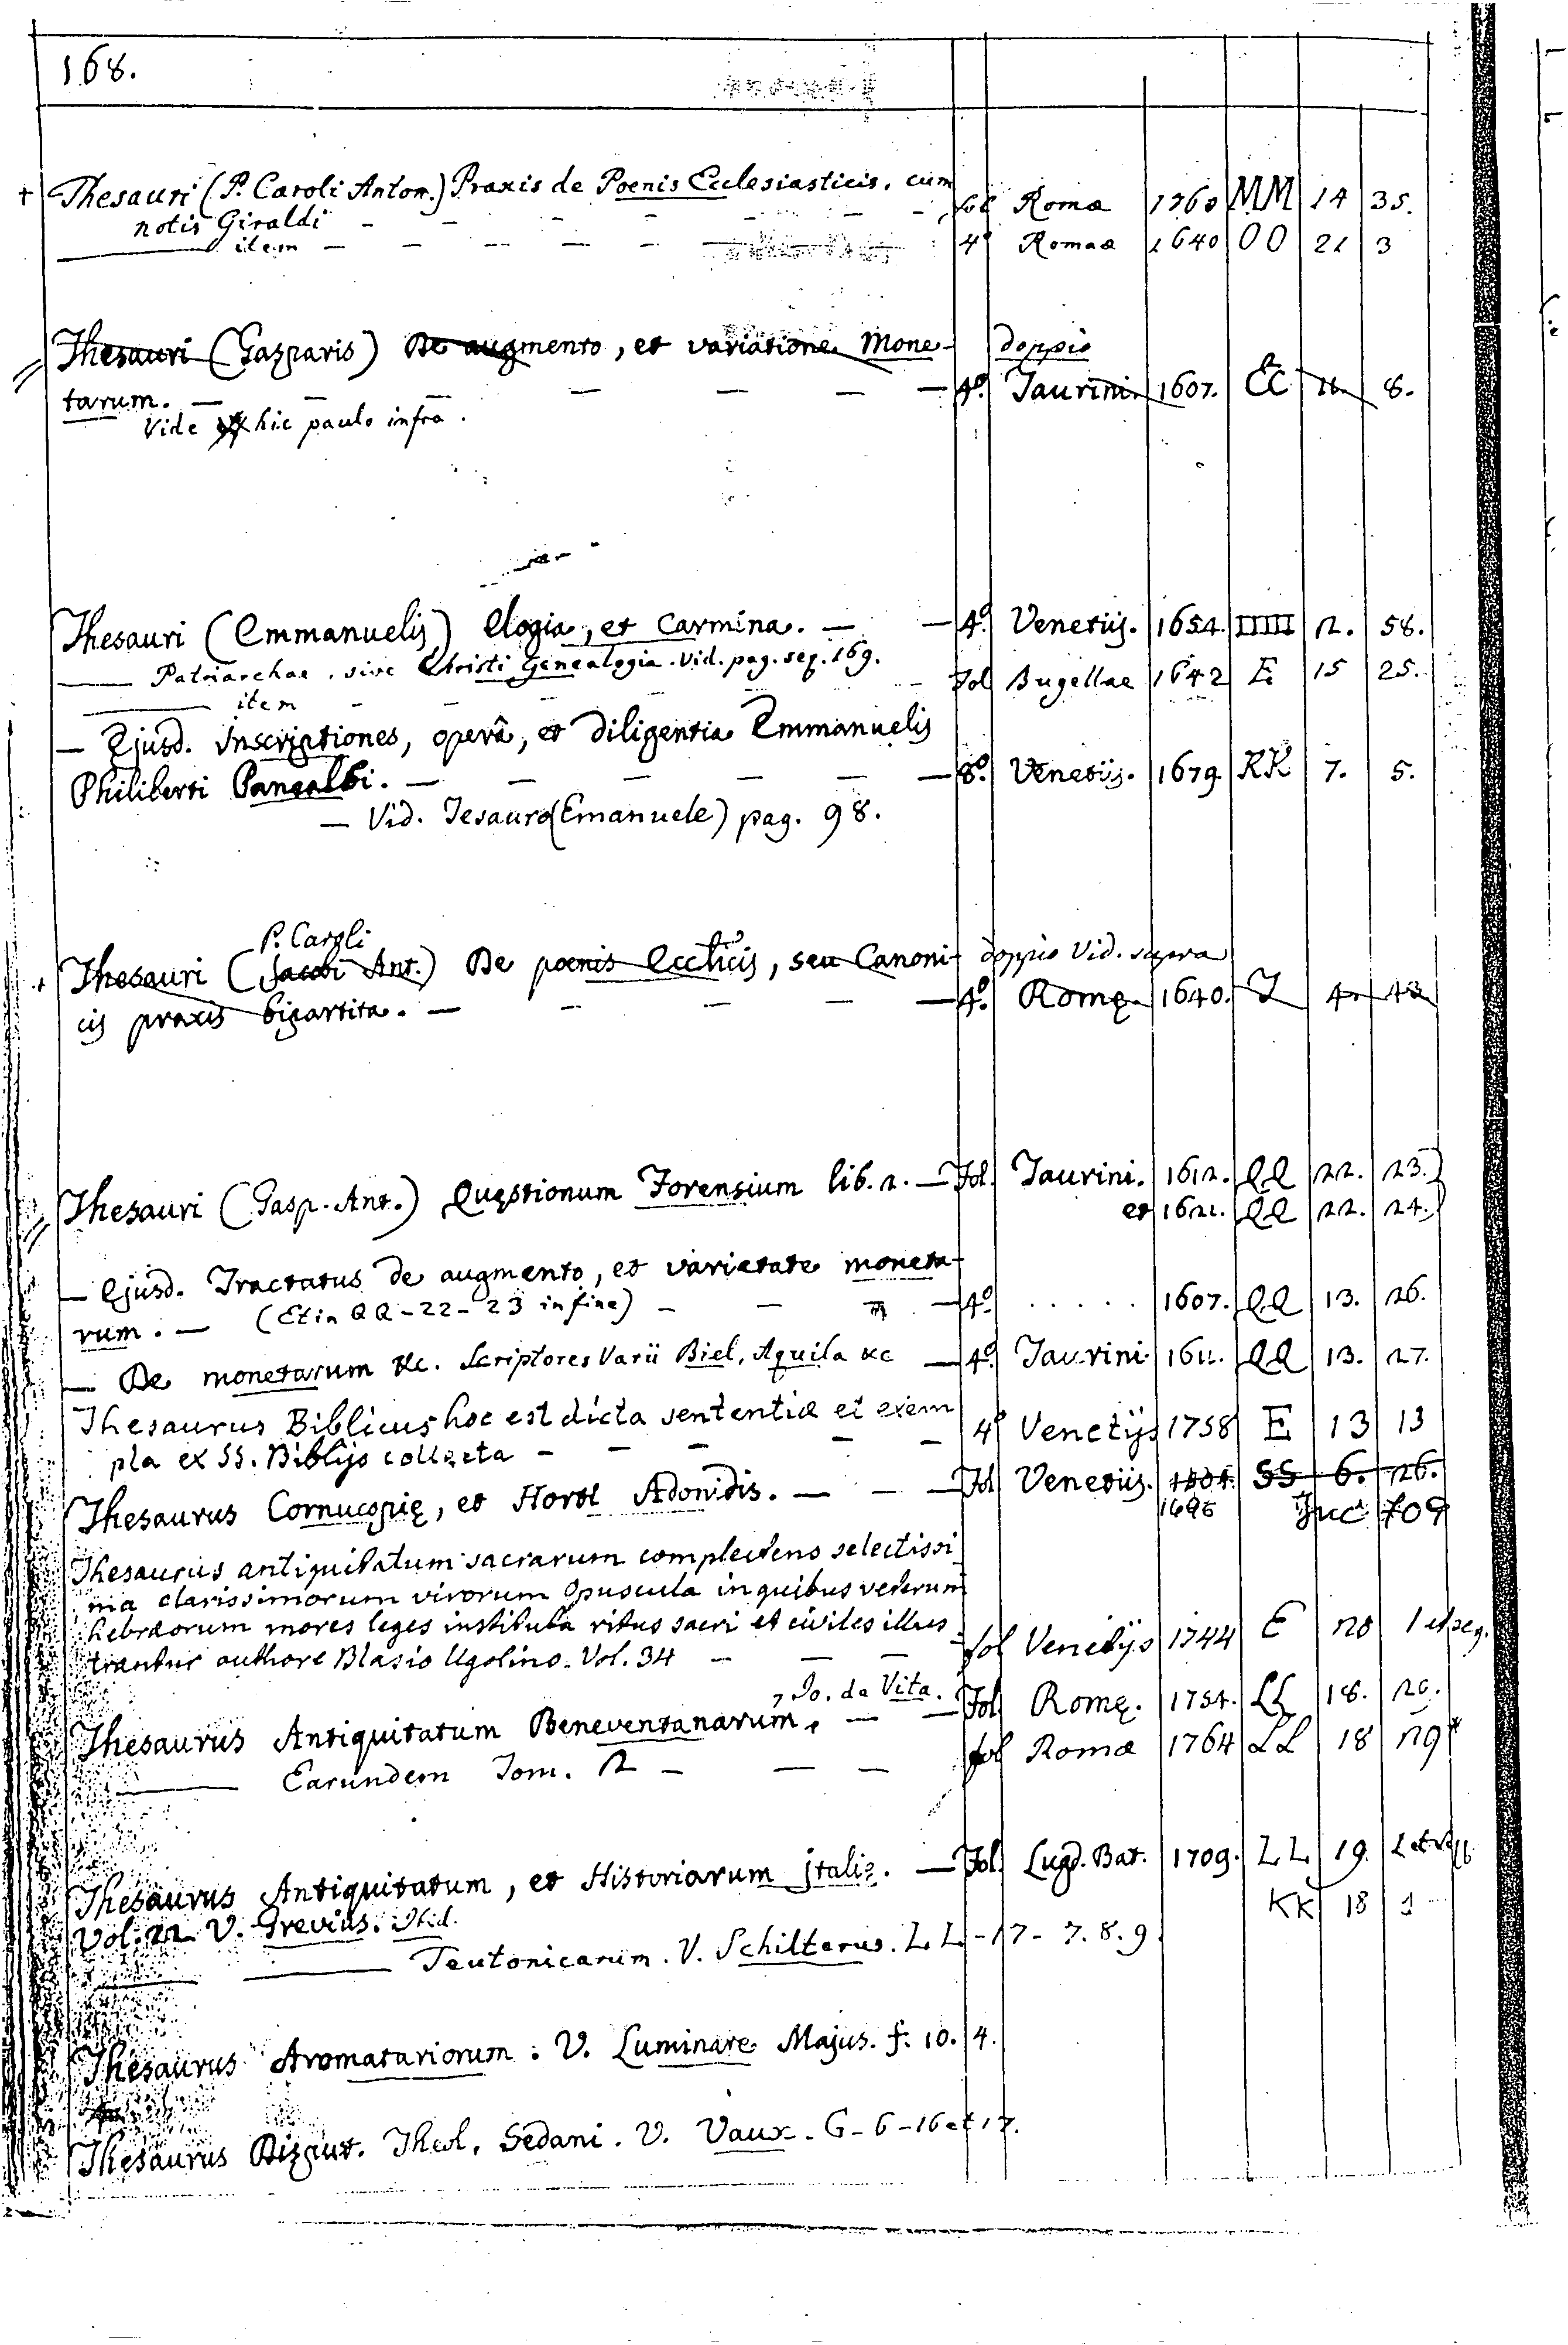 168.
† Thesauri (P. Caroli Anton.) Praxis de Poenis Ecclesiasticis, cum
notis Giraldi — — — — — — — fol Romæ 1760 MM 14 35.
item — — — — — 4º Romae 1640 OO 21 3
Thesauri (Gasparis) De augmento, et variatione Mone- doppio
tarum. — — — — — — — 4º. Taurini. 1607. CC 11. 8.
Vide hic paulo infra.
Thesauri (Emmanuelis) Elogia, et Carmina. — — 4º. Venetijs. 1654. IIIII 2. 58.
—— Patriarchae, sive Christi Genealogia. Vid. pag. seq. 169.
—— item — — — — — fol Bugellae 1642 E 15 25.
— Ejusd. Inscriptiones, operâ, et diligentia Emmanuelis
Philiberti Panealbi. — — — — — — 8º. Venetijs. 1679 KK 7. 5.
— Vid. Tesauro (Emanuele) pag. 98.
P. Caroli
Thesauri (Jacobi Ant.) De poenis Ecclicis, seu Canoni- doppio Vid. supra
cis praxis bipartita. — — — — — 4º. Romę 1640. I 4. 43
Thesauri (Gasp. Ant.) Quęstionum Forensium lib. 2. — Fol. Taurini. 1612. QQ 22. 23.)
et 1621. QQ 22. 24.)
— Ejusd. Tractatus de augmento, et varietate moneta-
rum. — (Et in QQ - 22 - 23 in fine) — — — 4º. . . . . . 1607. QQ 13. 26.
— De monetarum &c. Scriptores Varii Biel, Aquila &c — 4º. Taurini 1611. QQ 13. 27.
Thesaurus Biblicus hoc est dicta sententiæ et exem
pla ex SS. Biblijs collecta — — — — — 4º Venetijs 1758 E 13 13
Thesaurus Cornucopię, et Horti Adonidis. — — — Fol Venetiis. 1504. SS 6. 26.
1496 Inc. 709
Thesaurus antiquitatum sacrarum complectens selectissi
ma clarissimorum virorum Opuscula in quibus veterum
hebræorum mores leges instituta ritus sacri et civiles illus
trantur authore Blasio Ugolino. Vol. 34 — — — fol Venetijs 1744 E 20 1 et seq.
, Jo. de Vita.
Thesaurus Antiquitatum Beneventanarum. — — Fol Romę. 1754. LL 18. 20.
—— Earundem Tom. 2 — — — fol Romæ 1764 LL 18 29*
Thesaurus Antiquitatum, et Historiarum Italię. — Fol. Lugd. Bat. 1709. LL 19.
Vol. 22 V. Grevius. Ibid. KK 18 1
—— Teutonicarum. V. Schilterus. LL - 17 - 7. 8. 9
Thesaurus Aromatariorum: V. Luminare Majus. f. 10. 4.
Thesaurus Disput. Theol. Sedani. V. Vaux. G - 6 - 16 et 17.